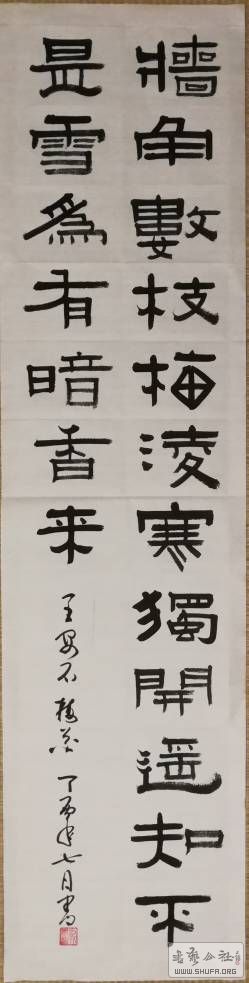 牆角數枝梅淩寒獨開遥知不
是雪為有暗香来
王安石梅花 丁酉年七月書
WWW.SHUFA.ORG